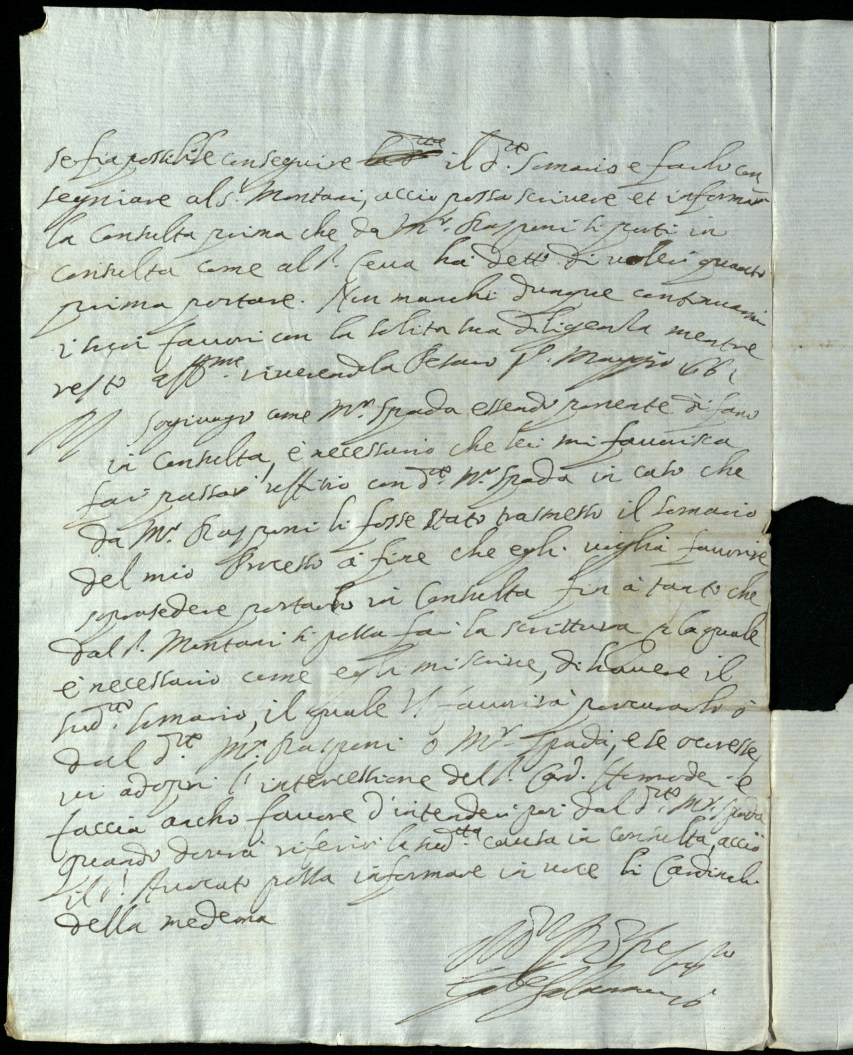 se sia possibile conseguire la d.tta il d.to Somario e farlo con
segniare al S.r Montani, accio possa scrivere et informar
la Consulta prima che da M.r Rasponi si porti in
Consulta come al S.r Ceva ha detto di volerlo quanto
prima portare. Non manchi dunque continuarmi
i suoi favori con la solita sua diligenza mentre
resto aff.mo riverendola Pesaro p.o Maggio 1661
Sogiungo come M.r Spada essendo ponente di fano
in Consulta, è necessario che lei mi favorisca
far passar uffitio con d.to M.r Spada in caso che
da M.r Rasponi li fosse stato trasmesso il Somario
del mio Processo à fine che egli voglia favorire
soprasedere portarlo in Consulta fin à tanto che
dal S.r Montani si possa far la scrittura p la quale
è necessario come egli mi scrive, di havere il
sud.to Somario, il quale VS favorirà procurarlo ò
dal d.to M.r Rasponi ò M.r Spada, e se ocoresse
vi adopri l'intercessione del S.r Card. e
faccia ancho favore d'intender poi dal d.to M.r Spada
quando dovrà riferir la sud.tta causa in consulta, acciò
il S.r Avocato possa informare in voce li Cardinali
della medema